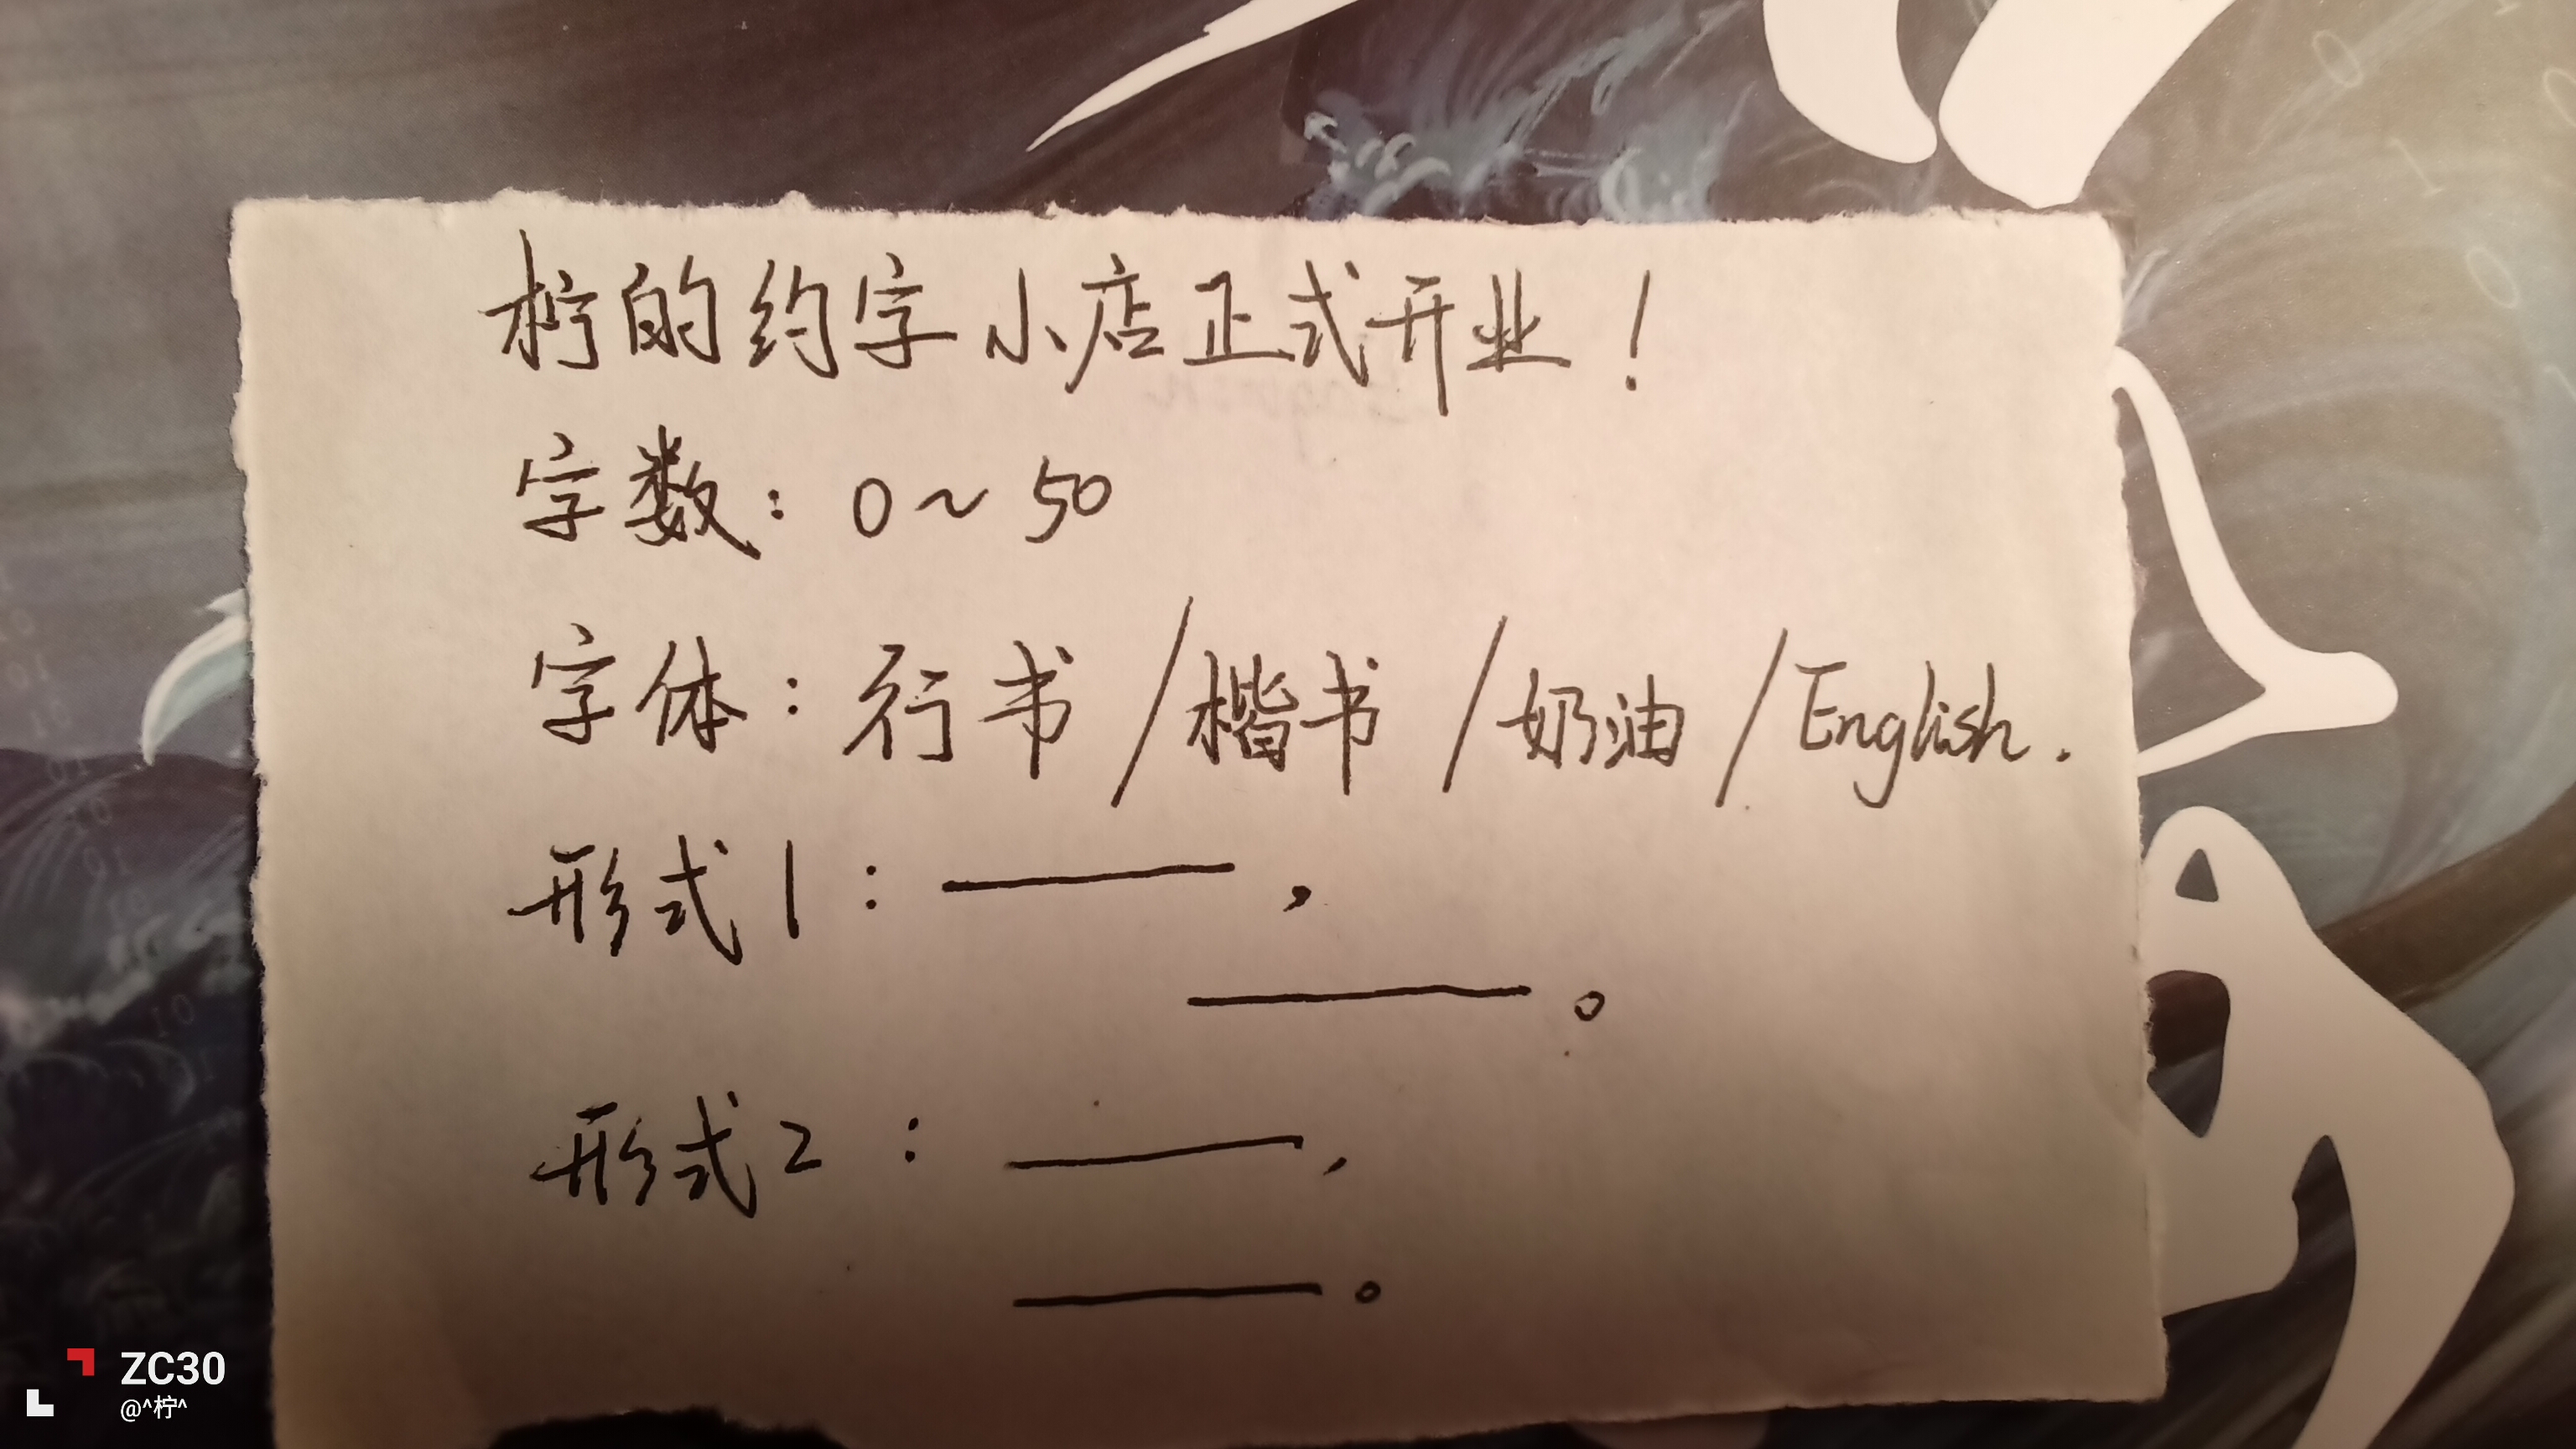 柠的约字小店正式开业！
字数：0～50
字体：行书/楷书/奶油/English.
形式1：———，
———。
形式2：———，
———。
ZC30
@^柠^